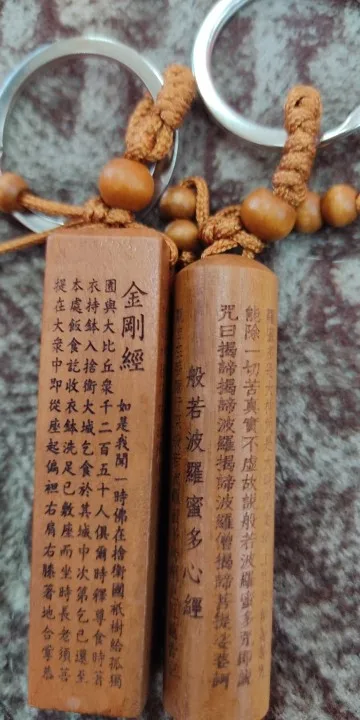 金剛經
如是我聞一時佛在捨衛國祇樹給孤獨
園與大比丘衆千二百五十人俱爾時釋尊食時著
衣持鉢入捨衛大城乞食於其城中次第乞已還至
本處飯食訖收衣鉢洗足已敷座而坐時長老須菩
提在大衆中即從座起偏袒右肩右膝著地合掌恭
能除一切苦真實不虛故說般若波羅蜜多咒即說
咒曰揭諦揭諦波羅揭諦波羅僧揭諦菩提娑婆訶
般若波羅蜜多心經